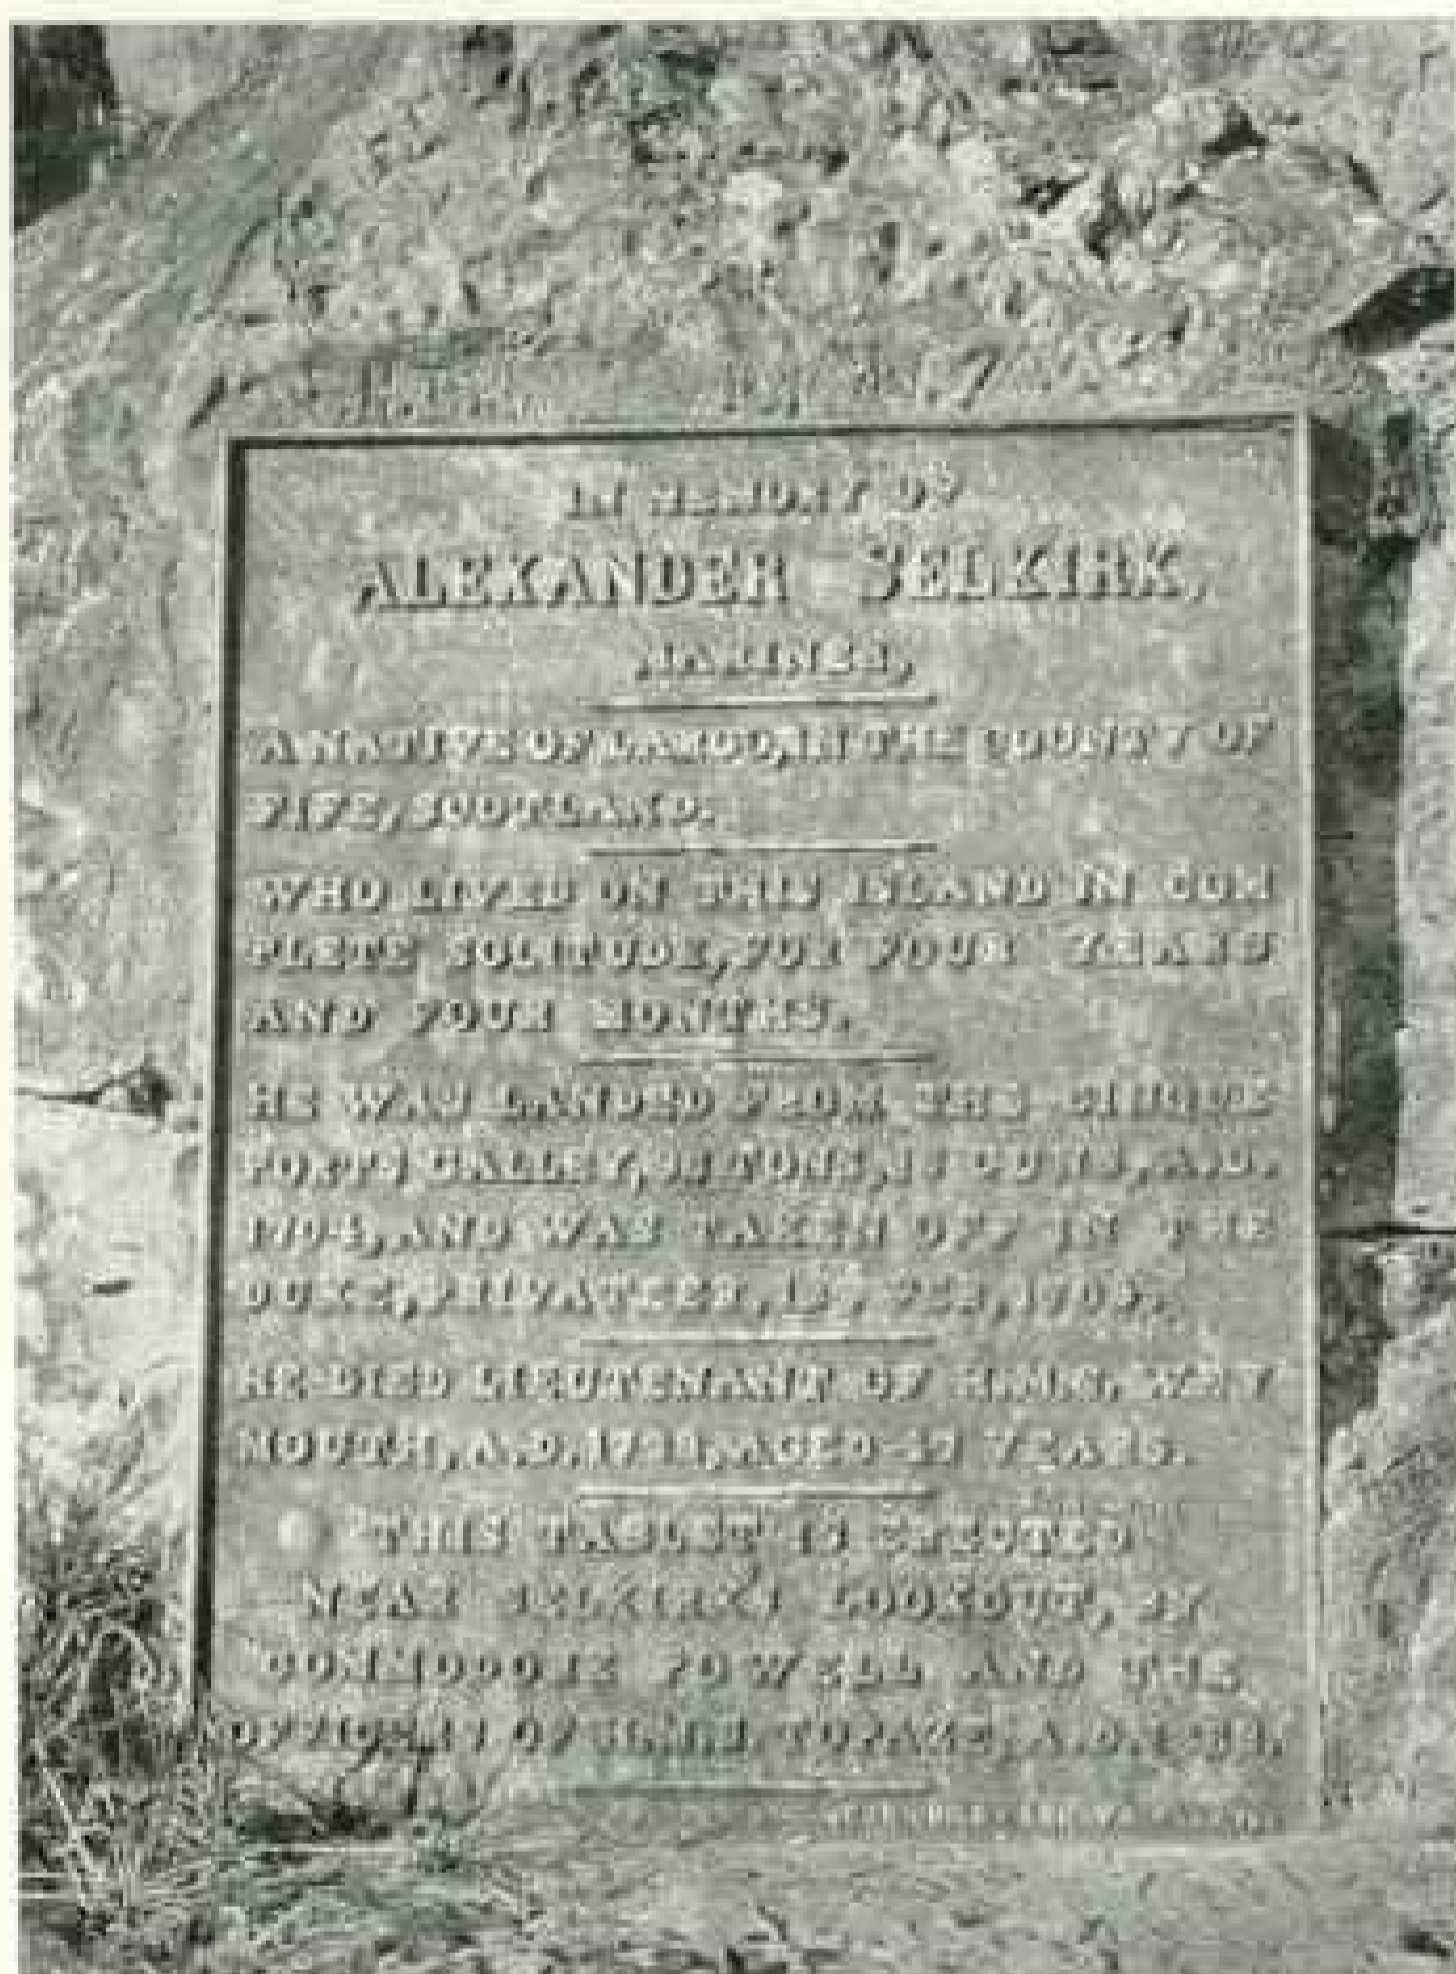 IN MEMORY OF
ALEXANDER SELKIRK,
MARINER,
A NATIVE OF LARGO, IN THE COUNTY OF
FIFE, SCOTLAND.
WHO LIVED ON THIS ISLAND IN COM
PLETE SOLITUDE, FOR FOUR YEARS
AND FOUR MONTHS.
HE WAS LANDED FROM THE CINQUE
PORTS GALLEY, 96 TONS, 16 GUNS, A.D.
1704, AND WAS TAKEN OFF IN THE
DUKE, PRIVATEER, 12TH FEB, 1709.
HE DIED LIEUTENANT OF H.M.S. WEY
MOUTH, A.D. AGED 47 YEARS.
THIS TABLET IS ERECTED
NEAR SELKIRK'S LOOKOUT, BY
COMMODORE POWELL AND THE
OFFICERS OF H.M.S. TOPAZE, A.D. 1868.